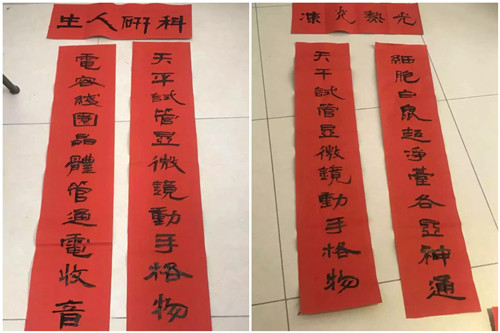 科研人生
天平試管显微鏡動手格物
電容綫圈晶體管通電收音
光熱
細胞白鼠超淨臺各显神通
天平試管显微鏡動手格物